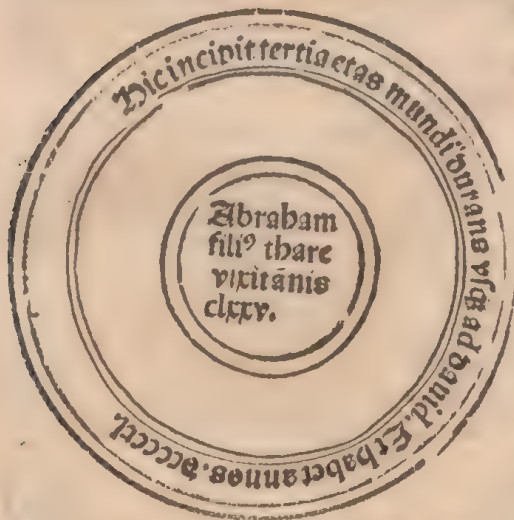 Hic incipit tertia etas mundi durans vsqꝫ ad dauid. Et habet annos. dccccxl.
Abraham
filiꝰ thare
vixit ānis
clxxv.